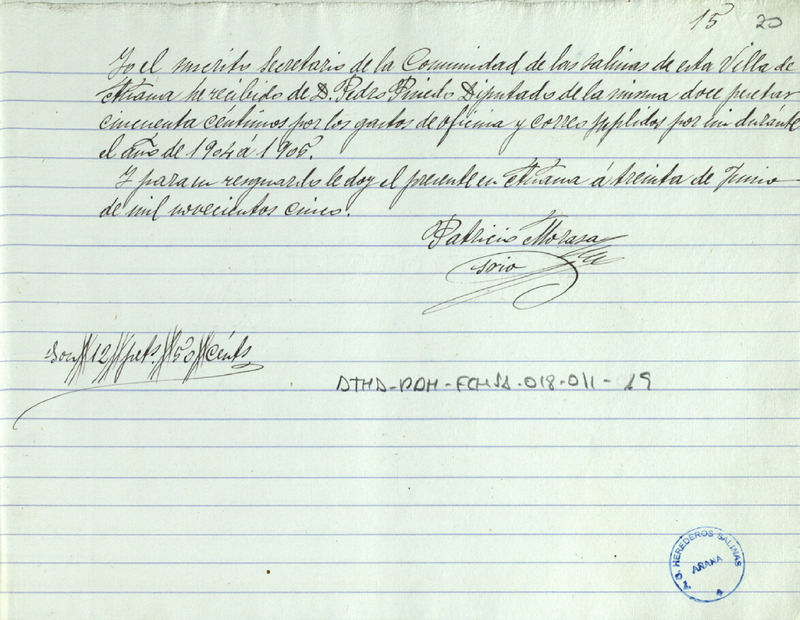 15 20
Yo el inscrito Secretario de la Comunidad de las salinas de esta Villa de
Añana he recibido de D. Pedro Pinedo Diputado de la misma doce pesetas
cincuenta centimos por los gastos de oficina y correo suplidos por mi durante
el año de 1904 á 1905.
Y para su resguardo le doy el presente en Añana á treinta de Junio
de mil novecientos cinco.
Patricio Moraza
Srio
Son 12 pets. 50 cénts
ATHA-DAH-FCHSA-018-011-19
HEREDEROS SALINAS
AÑANA